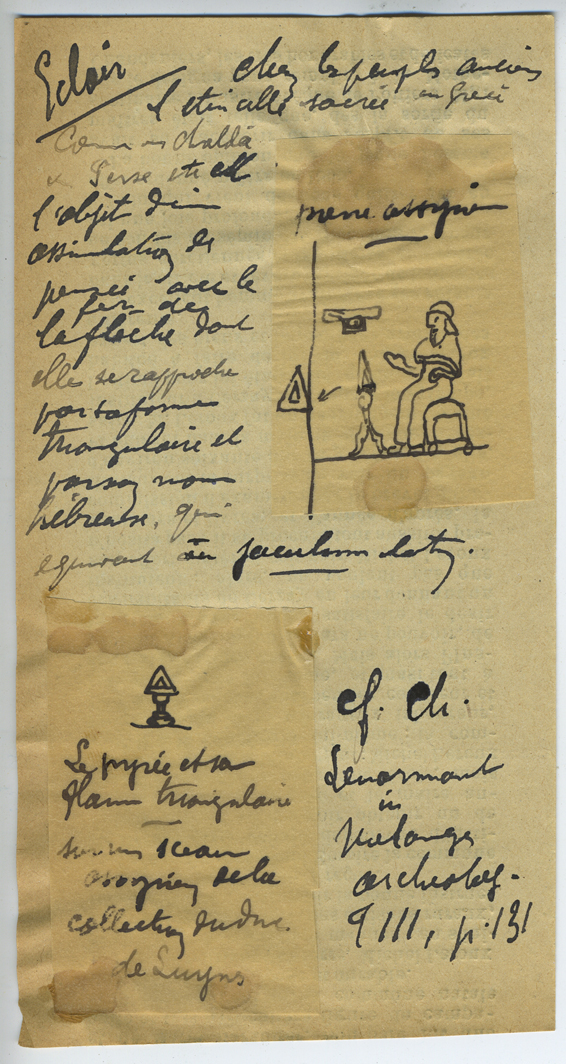 Eclair
chez les peuples anciens
l'étincelle sacrée en Grèce
comme en Chaldée
en Perse était
l'objet d'une
assimilation de
pensée avec le
fer de
la flèche dont
elle se rapproche
par sa forme
triangulaire et
par son nom
hébreux, qui
équivaut au jaculum latin.
pierre assyrienne
Le pyrée et sa
flamme triangulaire
sur un sceau
assyrien de la
collection du duc
de Luynes
cf. Ch.
Lenormant
in
Mélanges
archéolog.
T III, p. 131